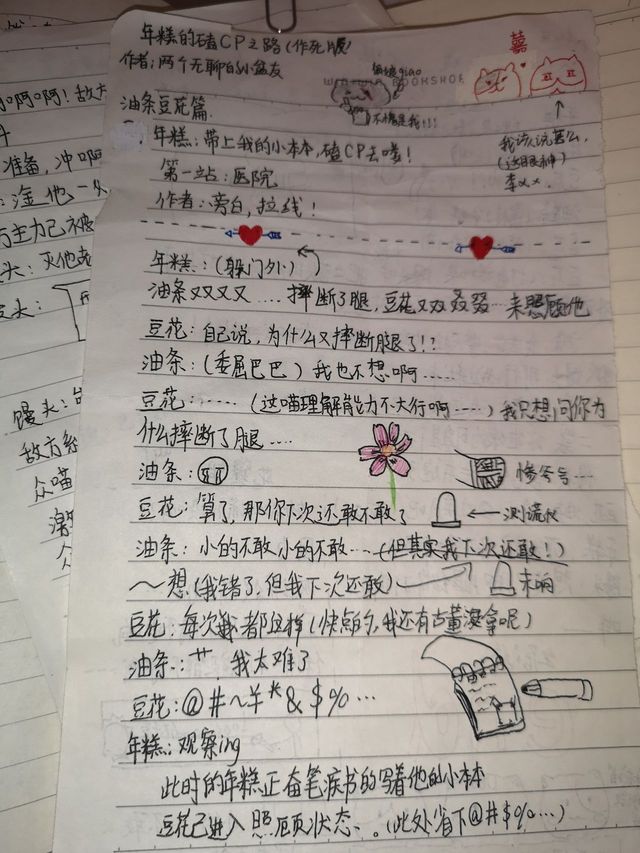 年糕的磕CP之路(作死版)
作者:两个无聊的小盆友
BOOKSHOP
囍
不愧是我!!!
油条豆花篇
年糕:带上我的小本本,磕CP去喽!
我该说甚么,
(这眼神)
李××.
第一站:医院
作者:旁白,拉线!
年糕:(躲门外)
油条又又又又....摔断了腿,豆花又双叒叕…来照顾他
豆花:自己说,为什么又摔断腿了!?
油条:(委屈巴巴)我也不想啊……
豆花:……(这喵理解能力不大行啊……)我只想问你为
什么摔断了腿....
油条:
惨兮兮…
豆花:算了,那你下次还敢不敢了
←测谎仪
油条:小的不敢小的不敢…(但其实我下次还敢!)
~想(我错了,但我下次还敢)
未响
豆花:每次都这样(快点的,我还有古董没拿呢)
油条:艹,我太难了
豆花:@#~¥*&$%…
年糕:观察ing
此时的年糕正奋笔疾书的写着他的小本
豆花已进入照顾状态..(此处省下@#$%…)
馒头:
敌方系
众喵
准备,冲啊